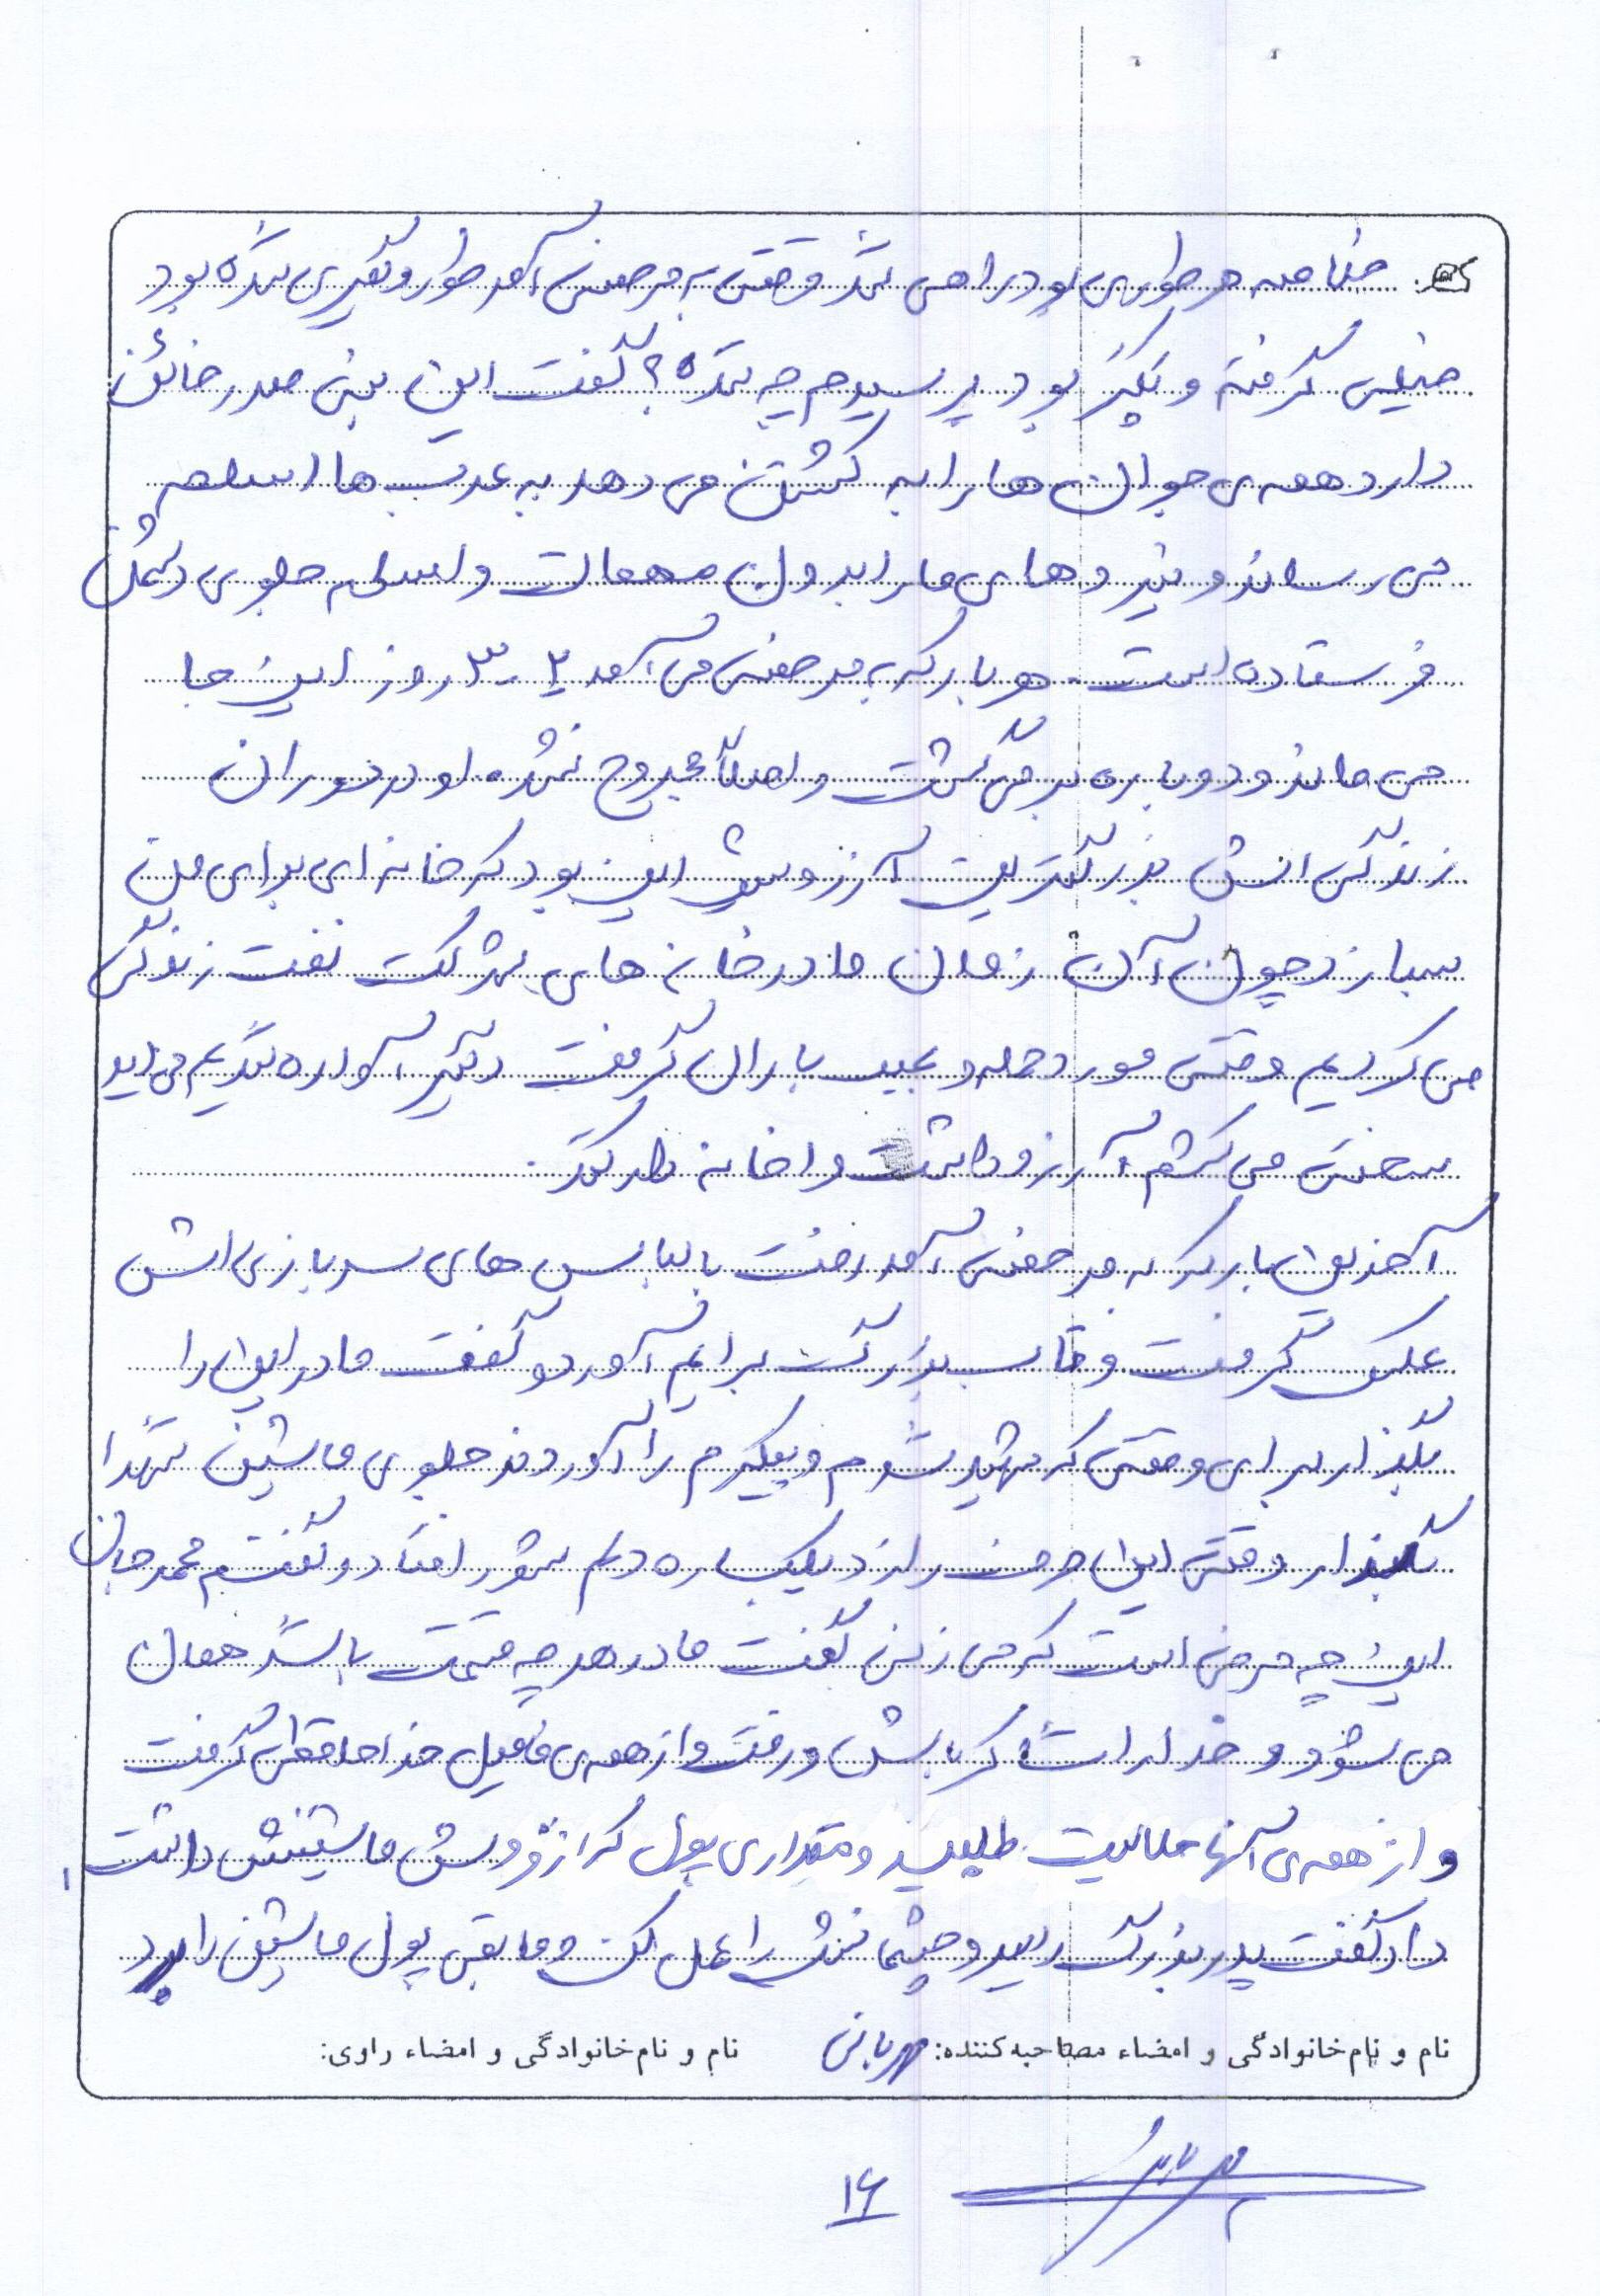 خلاصه هر طوری بود راهی شد وقتی به مرخصی آمد طور دیگری شده بود
خیلی گرفته و پکر بود پرسیدم چه شده؟ گفت این بنی صدر خائن
دارد همه‌ی جوان ها را به کشتن می دهد به عرب ها اسلحه
می رساند و نیروهای ما را بدون مهمات و اسلحه جلوی دشمن
فرستاده است. هر بار که به مرخصی می آمد ۲-۳ روز این جا
می ماند و دوباره بر می گشت و اصلاً مجروح نشده او در دوران
زندگی اش بزرگترین آرزویش این بود که خانه ای برای من
بسازد چون آن زمان ما در خانه های شرکت نفت زندگی
می کردیم وقتی مورد حمله و بمب باران گرفت دیگر آواره شدیم
سختی می کشم آرزو داشت ما خانه دار کند.
آخرین بار که به مرخصی آمد رفت با لباس های سربازی اش
عکس گرفت و قاب بزرگ برایم آورد و گفت مادر این را
بگذار برای وقتی که شهید شدم و پیکرم را آوردند جلوی ماشین شهدا
بگذار وقتی این حرف را زد یکباره دلم شور افتاد و گفتم محمد جان
این چه حرفی است که می زنی گفت مادر هر چه قسمت باشد همان
می شود و خدا را شاکر باش و رفت و از همه‌ی فامیل خداحافظی گرفت
و از همه‌ی آنها حلالیت طلبید و مقداری پول که از فروش ماشینش داشت
داد گفت پدربزرگ را ببر و چشمانش را عمل کن و مابقی پول ماشین را ببرد
نام و نام‌خانوادگی و امضاء مصاحبه‌کننده: مهربانی نام و نام‌خانوادگی و امضاء راوی:
۱۶